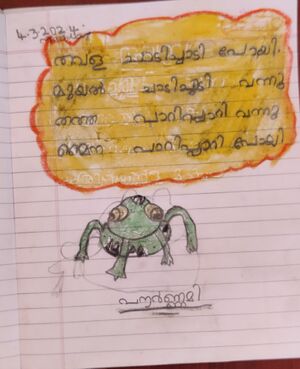 4-3-2024
തവള ചാടിച്ചാടി പോയി.
മുയൽ ചാടിച്ചാടി വന്നു
തത്ത പാറിപ്പാറി വന്നു
മൈന പാറിപ്പാറി പോയി
പൗർണ്ണമി